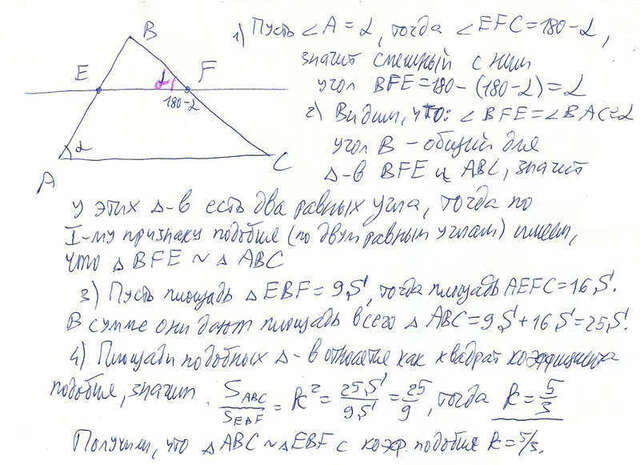 1) Пусть ∠A = α, тогда ∠EFC = 180 - α,
значит смежный с ним
угол BFE = 180 - (180 - α) = α
2) Видим, что: ∠BFE = ∠BAC = α
угол B - общий для
Δ-в BFE и ABC, значит
B
E
α
F
180 - α
α
A
C
у этих Δ-в есть два равных угла, тогда по
I-му признаку подобия (по двум равным углам) имеем,
что Δ BFE ~ Δ ABC
3) Пусть площадь Δ EBF = 9S, тогда площадь AEFC = 16S.
В сумме они дают площадь всего Δ ABC = 9S + 16S = 25S.
4) Площади подобных Δ-в относятся как квадрат коэффициента
подобия, значит S_ABC/S_EBF = k² = 25S/9S = 25/9, тогда k = 5/3
Получили, что Δ ABC ~ Δ EBF с коэф. подобия k = 5/3.